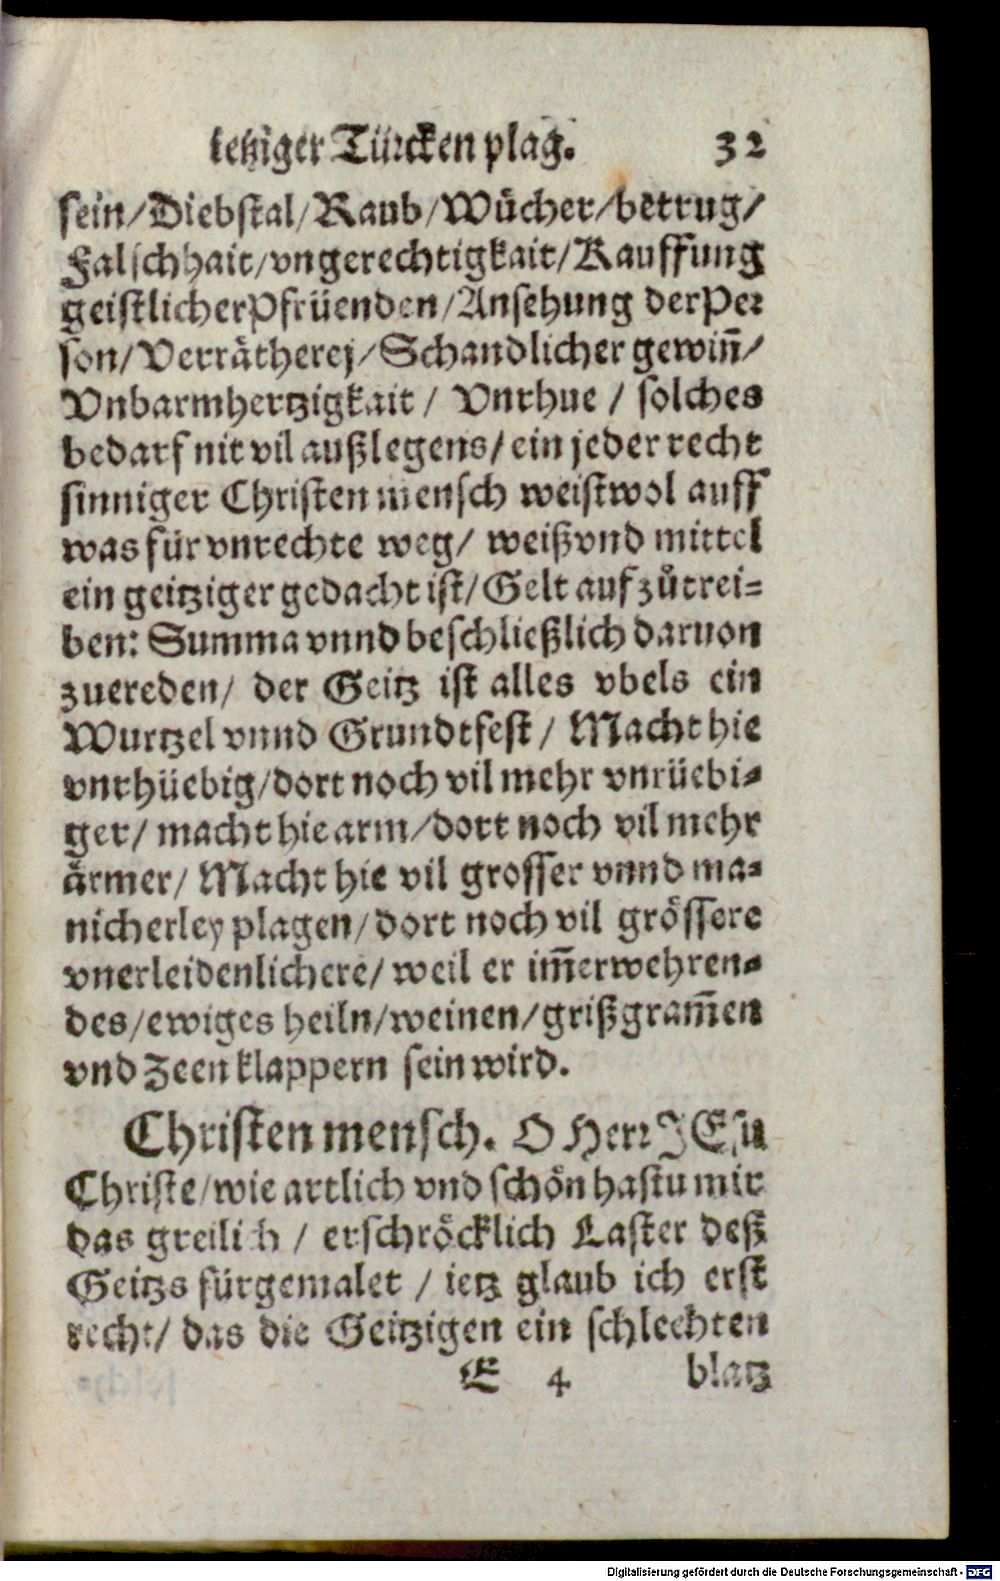 ietziger Türcken plag. 32
sein/Diebstal/Raub/Wůcher/betrug/
Falschhait/vngerechtigkait/Kauffung
geistlicher Pfrüenden/Ansehung der Per
son/Verrätherej/Schandlicher gewin̄/
Vnbarmhertzigkait/ Vnrhue / solches
bedarf nit vil außlegens/ein jeder recht
sinniger Christen mensch weist wol auff
was für vnrechte weg/ weiß vnd mittel
ein geitziger gedacht ist/Gelt auf zůtrei-
ben: Summa vnnd beschließlich daruon
zuereden/ der Geitz ist alles vbels ein
Wurtzel vnnd Grundtfest/ Macht hie
vnrhüebig/dort noch vil mehr vnrüebi-
ger/ macht hie arm/dort noch vil mehr
ärmer/ Macht hie vil grosser vnnd ma-
nicherley plagen/dort noch vil grössere
vnerleidenlichere/ weil er im̄erwehren-
des/ewiges heiln/weinen/grißgram̄en
vnd Zeen klappern sein wird.
Christen mensch. O Herr JEsu
Christe/wie artlich vnd schön hastu mir
das greilich / erschröcklich Laster deß
Geitzs fürgemalet / ietz glaub ich erst
recht/ das die Geitzigen ein schlechten
E 4 blatz
Digitalisierung gefördert durch die Deutsche Forschungsgemeinschaft - DFG